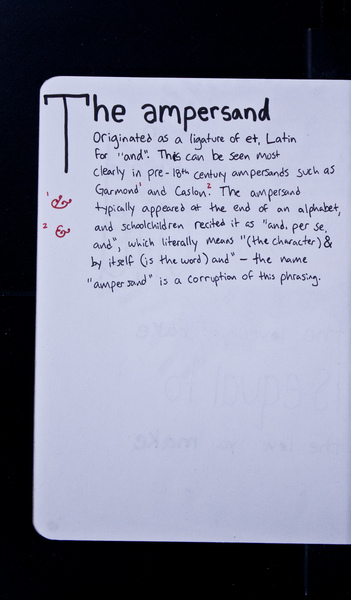 The ampersand
Originated as a ligature of et, Latin
for "and". This can be seen most
clearly in pre-18th century ampersands such as
Garmond¹ and Caslon². The ampersand
typically appeared at the end of an alphabet,
and schoolchildren recited it as "and, per se,
and", which literally means "(the character) &
by itself (is the word) and" – the name
"ampersand" is a corruption of this phrasing.
1 &
2 &
is equal to
make